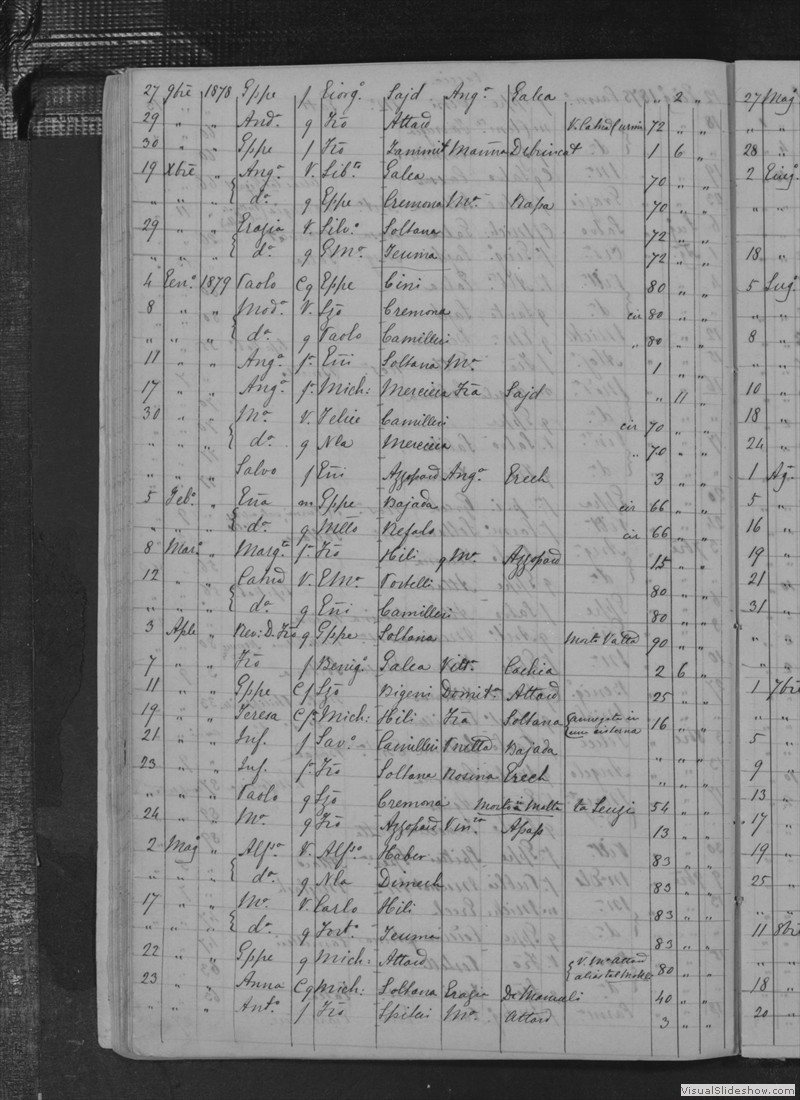 27 9bre 1878 Gppe f Giorg.º Sajd Ang.ª Galea „ 2 „
29 „ „ And.ª g Fro Attard V. Catrid Curmi 72 „ „
30 „ „ Gppe f Fro Zammit Mauma Debrincat 1 6 „
19 Xbre „ Ang.ª V. Lib.to Galea 70 „ „
„ „ „ d.ª g Gppe Cremona M.ª Rapa 70 „ „
29 „ „ Grazia V. Silv.º Soltana 72 „ „
„ „ „ d.ª g GM.ª Teuma 72 „ „
4 Gen.º 1879 Paolo Cg Gppe Cini 80 „ „
8 „ „ Mod.ª V. Ljo Cremona cir 80 „ „
„ „ „ d.ª g Paolo Camilleri „ 80 „ „
11 „ „ Ang.ª f Gni Soltana M.ª 1 „ „
17 „ „ Ang.ª f Mich: Mercieca Fra Sajd „ 11 „
30 „ „ M.ª V. Felice Camilleri cir 70 „ „
„ „ „ d.ª g Nla Mercieca „ 70 „ „
„ „ „ Salvo f Gni Azzopard Ang.ª Grech 3 „ „
5 Feb.º „ Gna m Gppe Bajada cir 66 „ „
„ „ „ d.ª g Mtto Refalo cir 66 „ „
8 Mar.º „ Marg.ta f Fro Hili g M.ª Azzopard 15 „ „
12 „ „ Catrid V. GM.ª Portelli 80 „ „
„ „ „ d.ª g Gni Camilleri 80 „ „
3 Aple „ Rev: D. Fro g Gppe Soltana Morto Vatta 90 „ „
7 „ „ Fro f Benig.º Galea Vitt.ª Cachia 2 6 „
11 „ „ Gppe Cf Ljo Bigeni Domit.ª Attard 25 „ „
19 „ „ Teresa Cf Mich: Hili Fra Soltana annegata in una cisterna 16 „ „
21 „ „ Inf. f Sav.º Camilleri Pnetta Bajada „ „ „
23 „ „ Inf. f Fro Soltana Rosina Grech „ „ „
„ „ „ Paolo g Ljo Cremona Morto in Malta ta Lenzi 54 „ „
24 „ „ M.ª g Fro Azzopard Vin.za Apap 13 „ „
2 Mag „ Alf.ª V. Alf.º Haber 83 „ „
„ „ „ d.ª g Nla Dimech 83 „ „
17 „ „ M.ª V. Carlo Hili 83 „ „
„ „ „ d.ª g Fort.º Teuma 83 „ „
22 „ „ Gppe g Mich: Attard V. M.ª Attard 80 „ „
23 „ „ Anna Cg Mich: Soltana Grazia De Manuali 40 „ „
„ „ „ Ant.º f Fro Spiteri M.ª Attard 3 „ „
27 Mag
„ „
28 „
2 Giug.º
„ „
18 „
5 Lug.º
8 „
„ „
10 „
18 „
24 „
1 Ag.º
5 „
16 „
19 „
21 „
31 „
„ „
„ „
1 7bre
„ „
5 „
9 „
13 „
17 „
19 „
25 „
„ „
11 8bre
„ „
18 „
20 „
VisualSlideshow.com